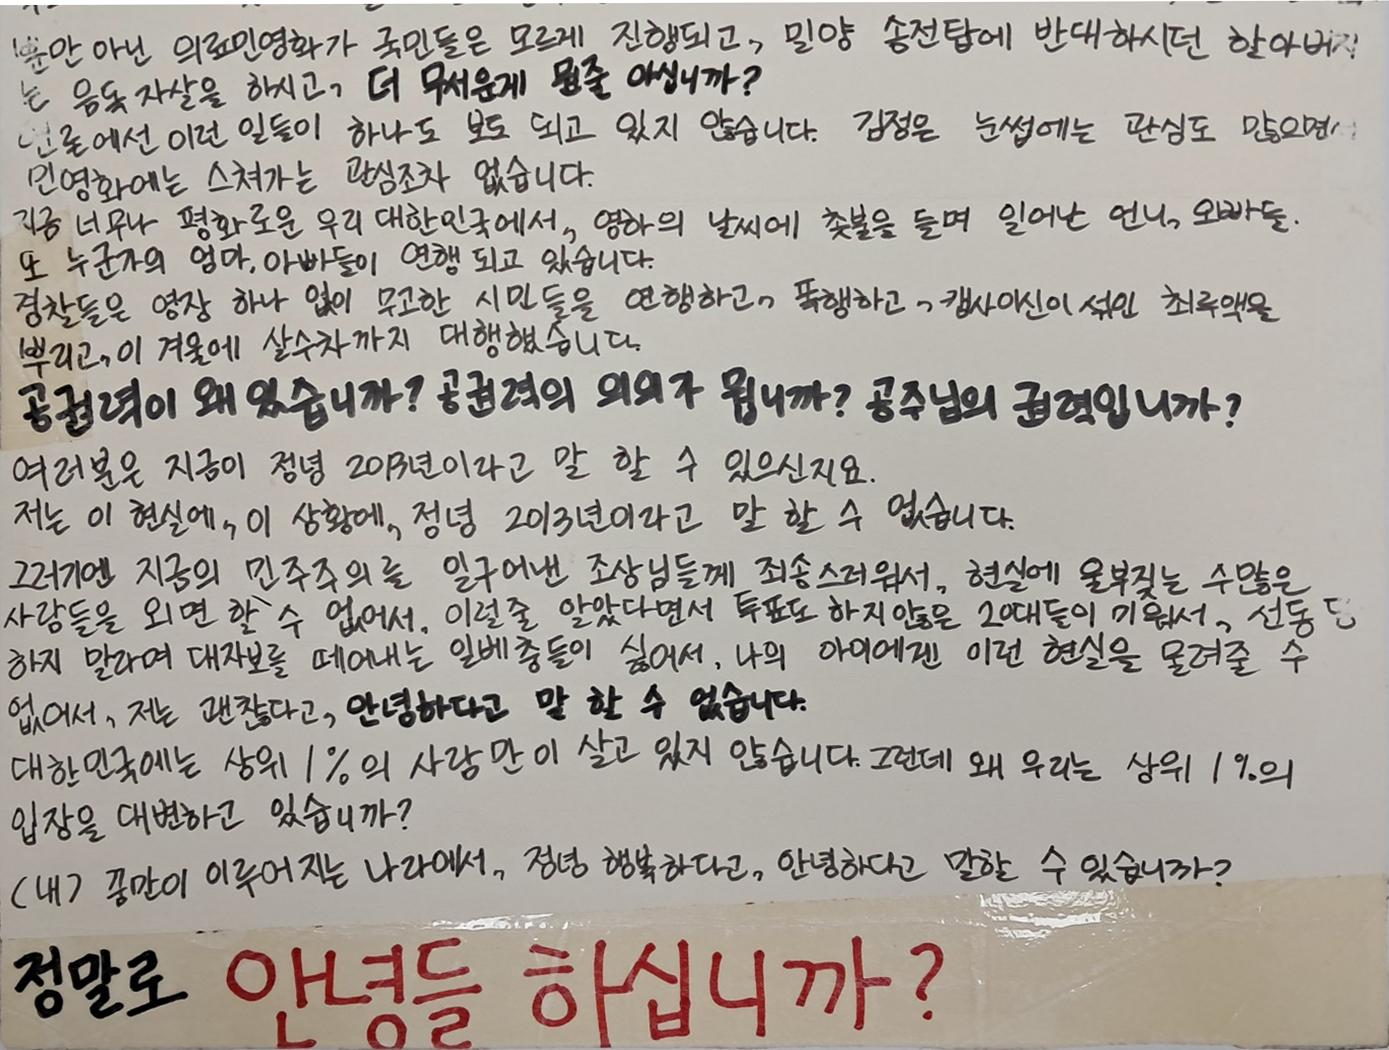 뿐만 아닌 의료민영화가 국민들은 모르게 진행되고, 밀양 송전탑에 반대하시던 할아버지
는 음독자살을 하시고, 더 무서운게 뭔줄 아십니까?
언론에선 이런 일들이 하나도 보도 되고 있지 않습니다. 김정은 눈썹에는 관심도 많으면서
민영화에는 스쳐가는 관심조차 없습니다.
지금 너무나 평화로운 우리 대한민국에서, 영하의 날씨에 촛불을 들며 일어난 언니, 오빠들.
또 누군가의 엄마, 아빠들이 연행 되고 있습니다.
경찰들은 영장 하나 없이 무고한 시민들을 연행하고, 폭행하고, 캡사이신이 섞인 최루액을
뿌리고, 이 겨울에 살수차까지 대행했습니다.
공권력이 왜 있습니까? 공권력의 의의가 뭡니까? 공주님의 권력입니까?
여러분은 지금이 정녕 2013년이라고 말 할 수 있으신지요.
저는 이 현실에, 이 상황에, 정녕 2013년이라고 말 할 수 없습니다.
그러기엔 지금의 민주주의를 일구어낸 조상님들께 죄송스러워서, 현실에 울부짖는 수많은
사람들을 외면 할 수 없어서, 이럴줄 알았다면서 투표도 하지않은 20대들이 미워서, 선동
하지 말라며 대자보를 떼어내는 일베충들이 싫어서, 나의 아이에겐 이런 현실을 물려줄 수
없어서, 저는 괜찮다고, 안녕하다고 말 할 수 없습니다.
대한민국에는 상위 1%의 사람만이 살고 있지 않습니다. 그런데 왜 우리는 상위 1%의
입장을 대변하고 있습니까?
(내) 꿈만이 이루어지는 나라에서, 정녕 행복하다고, 안녕하다고 말할 수 있습니까?
정말로 안녕들 하십니까?